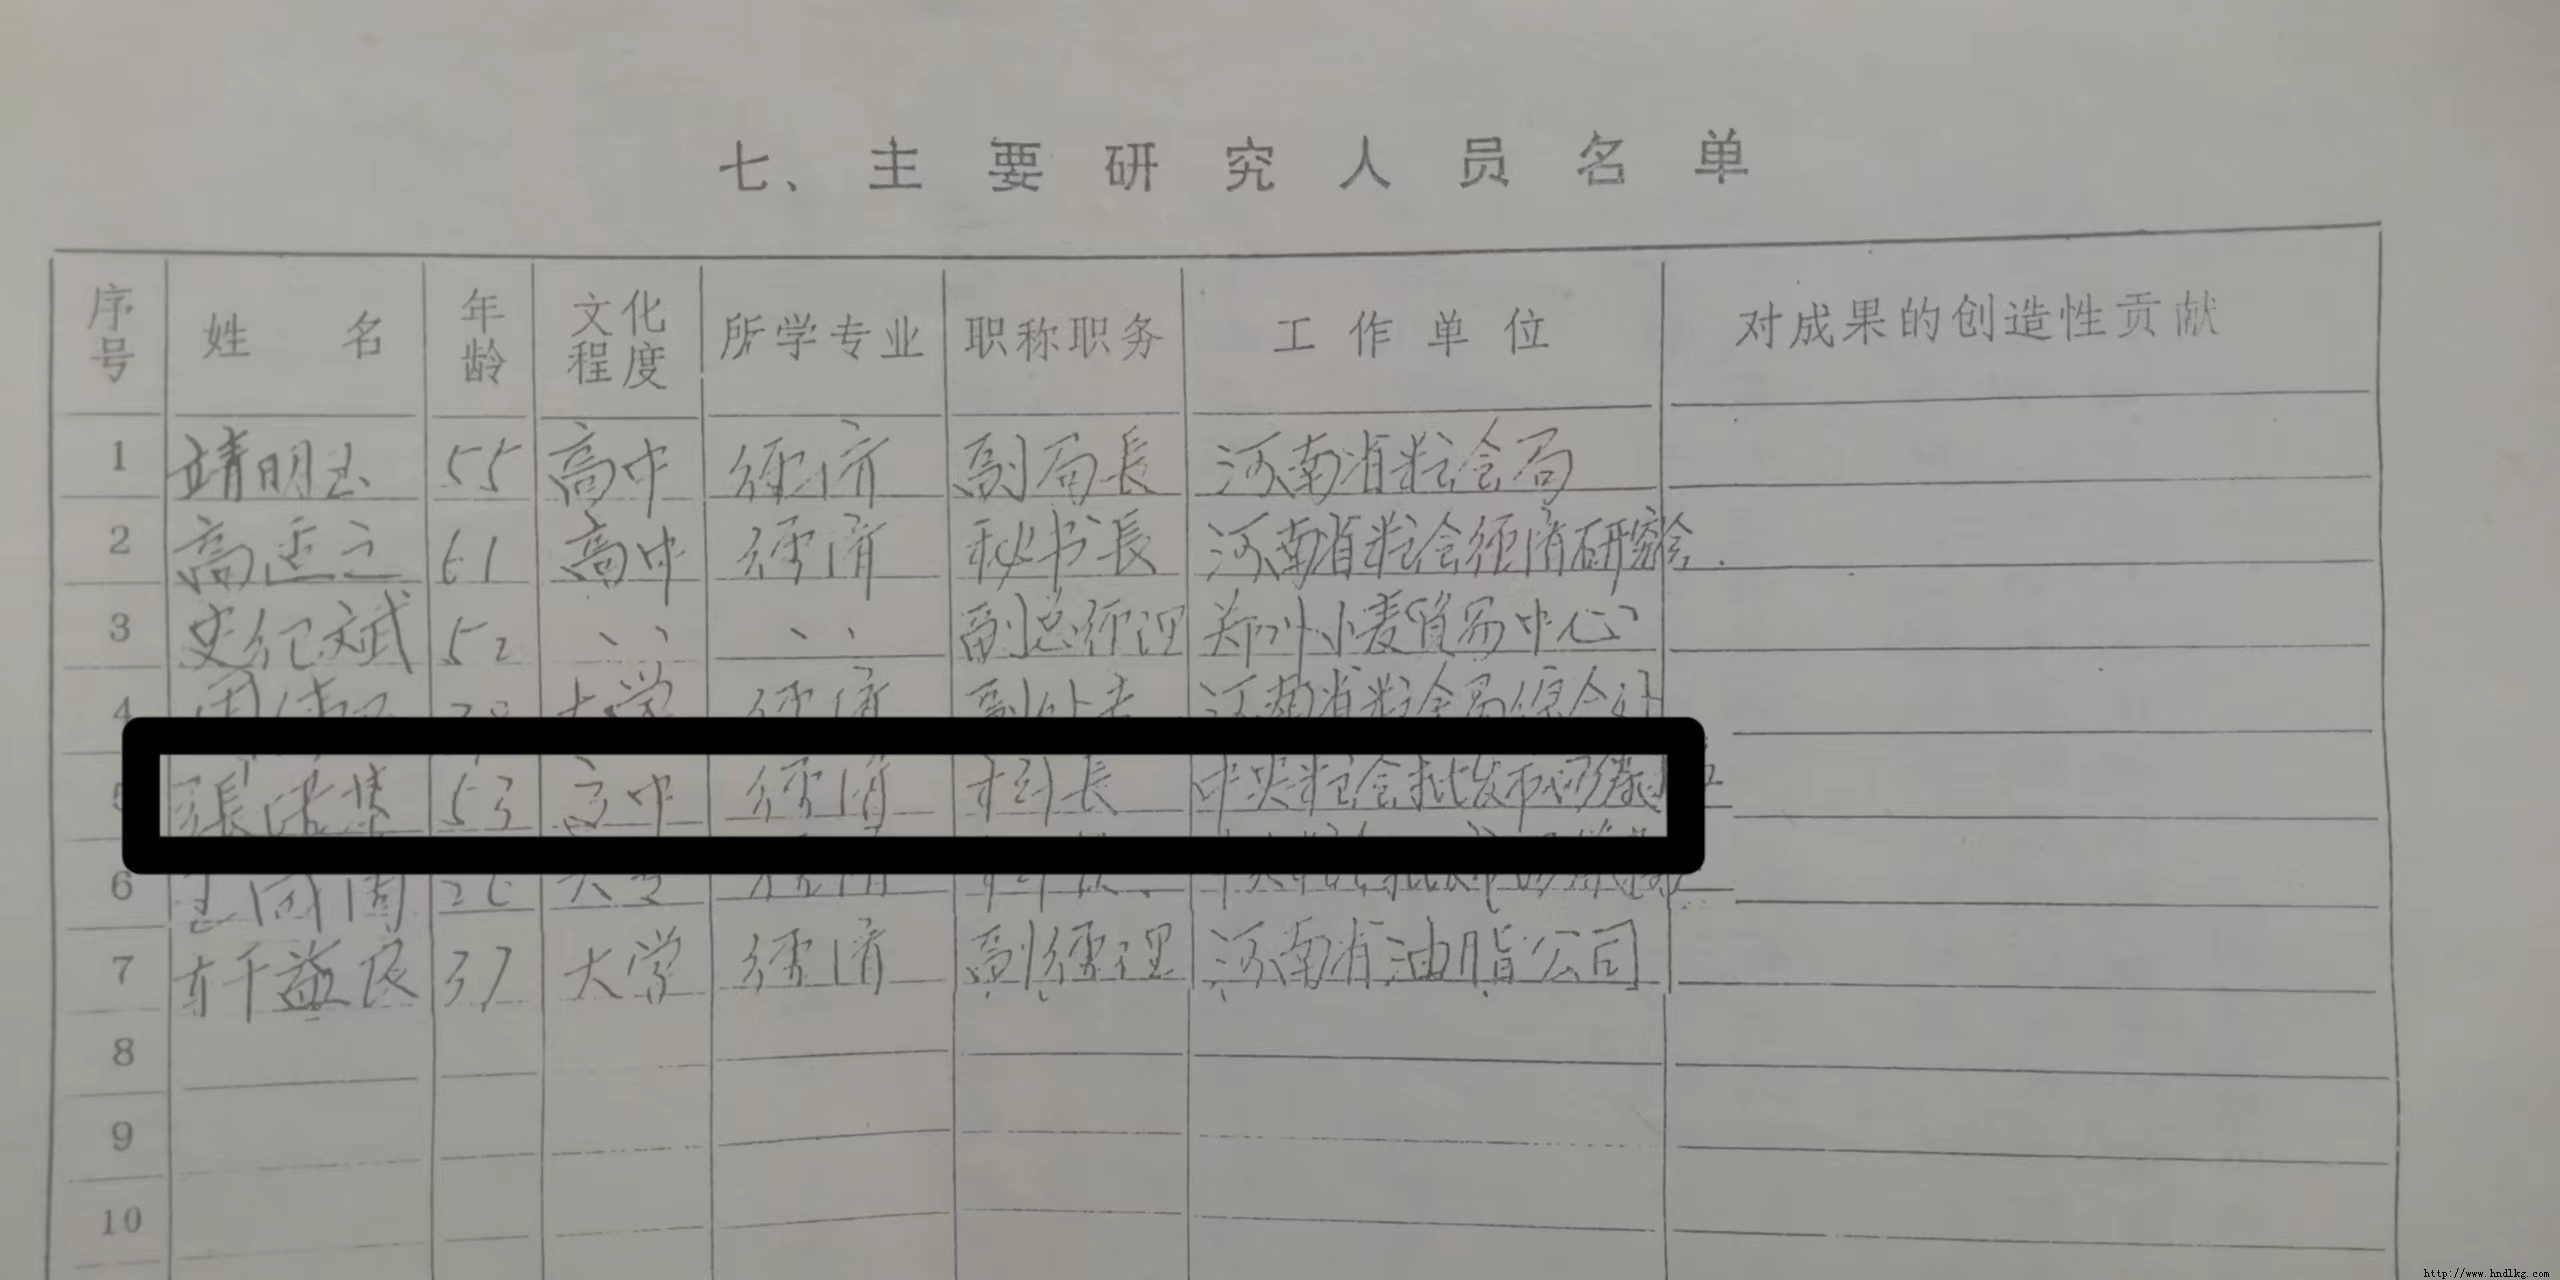 七、主要研究人员名单
序号 姓名 年龄 文化程度 所学专业 职称职务 工作单位 对成果的创造性贡献
1 靖明玉 55 高中 经济 副局長 河南省粮食局
2 高 之 61 高中 经济 秘书長 河南省粮食经济研究会.
3 史纪斌 52 〃 〃 副总经理 郑州小麦贸易中心
4 大学 经济 副处长 河南省粮食局综合
5 張 53 高中 经济 科長 中央粮食批发市场
6 王 26 大 经济 科 中央粮食批发市场
7 轩益民 37 大学 经济 副经理 河南省油脂公司
8
9
10
http://www.hndlkg.com